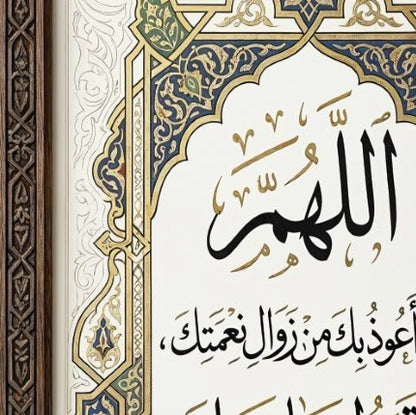 اللَّهُمَّ
أَعُوذُ بِكَ مِنْ زَوَالِ نِعْمَتِكَ،